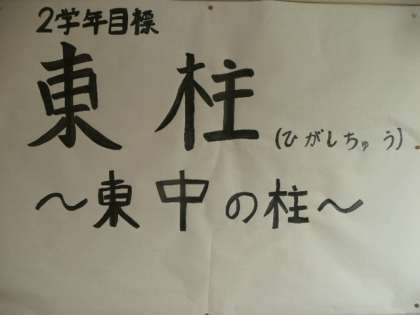 2学年目標
東柱(ひがしちゅう)
〜東中の柱〜